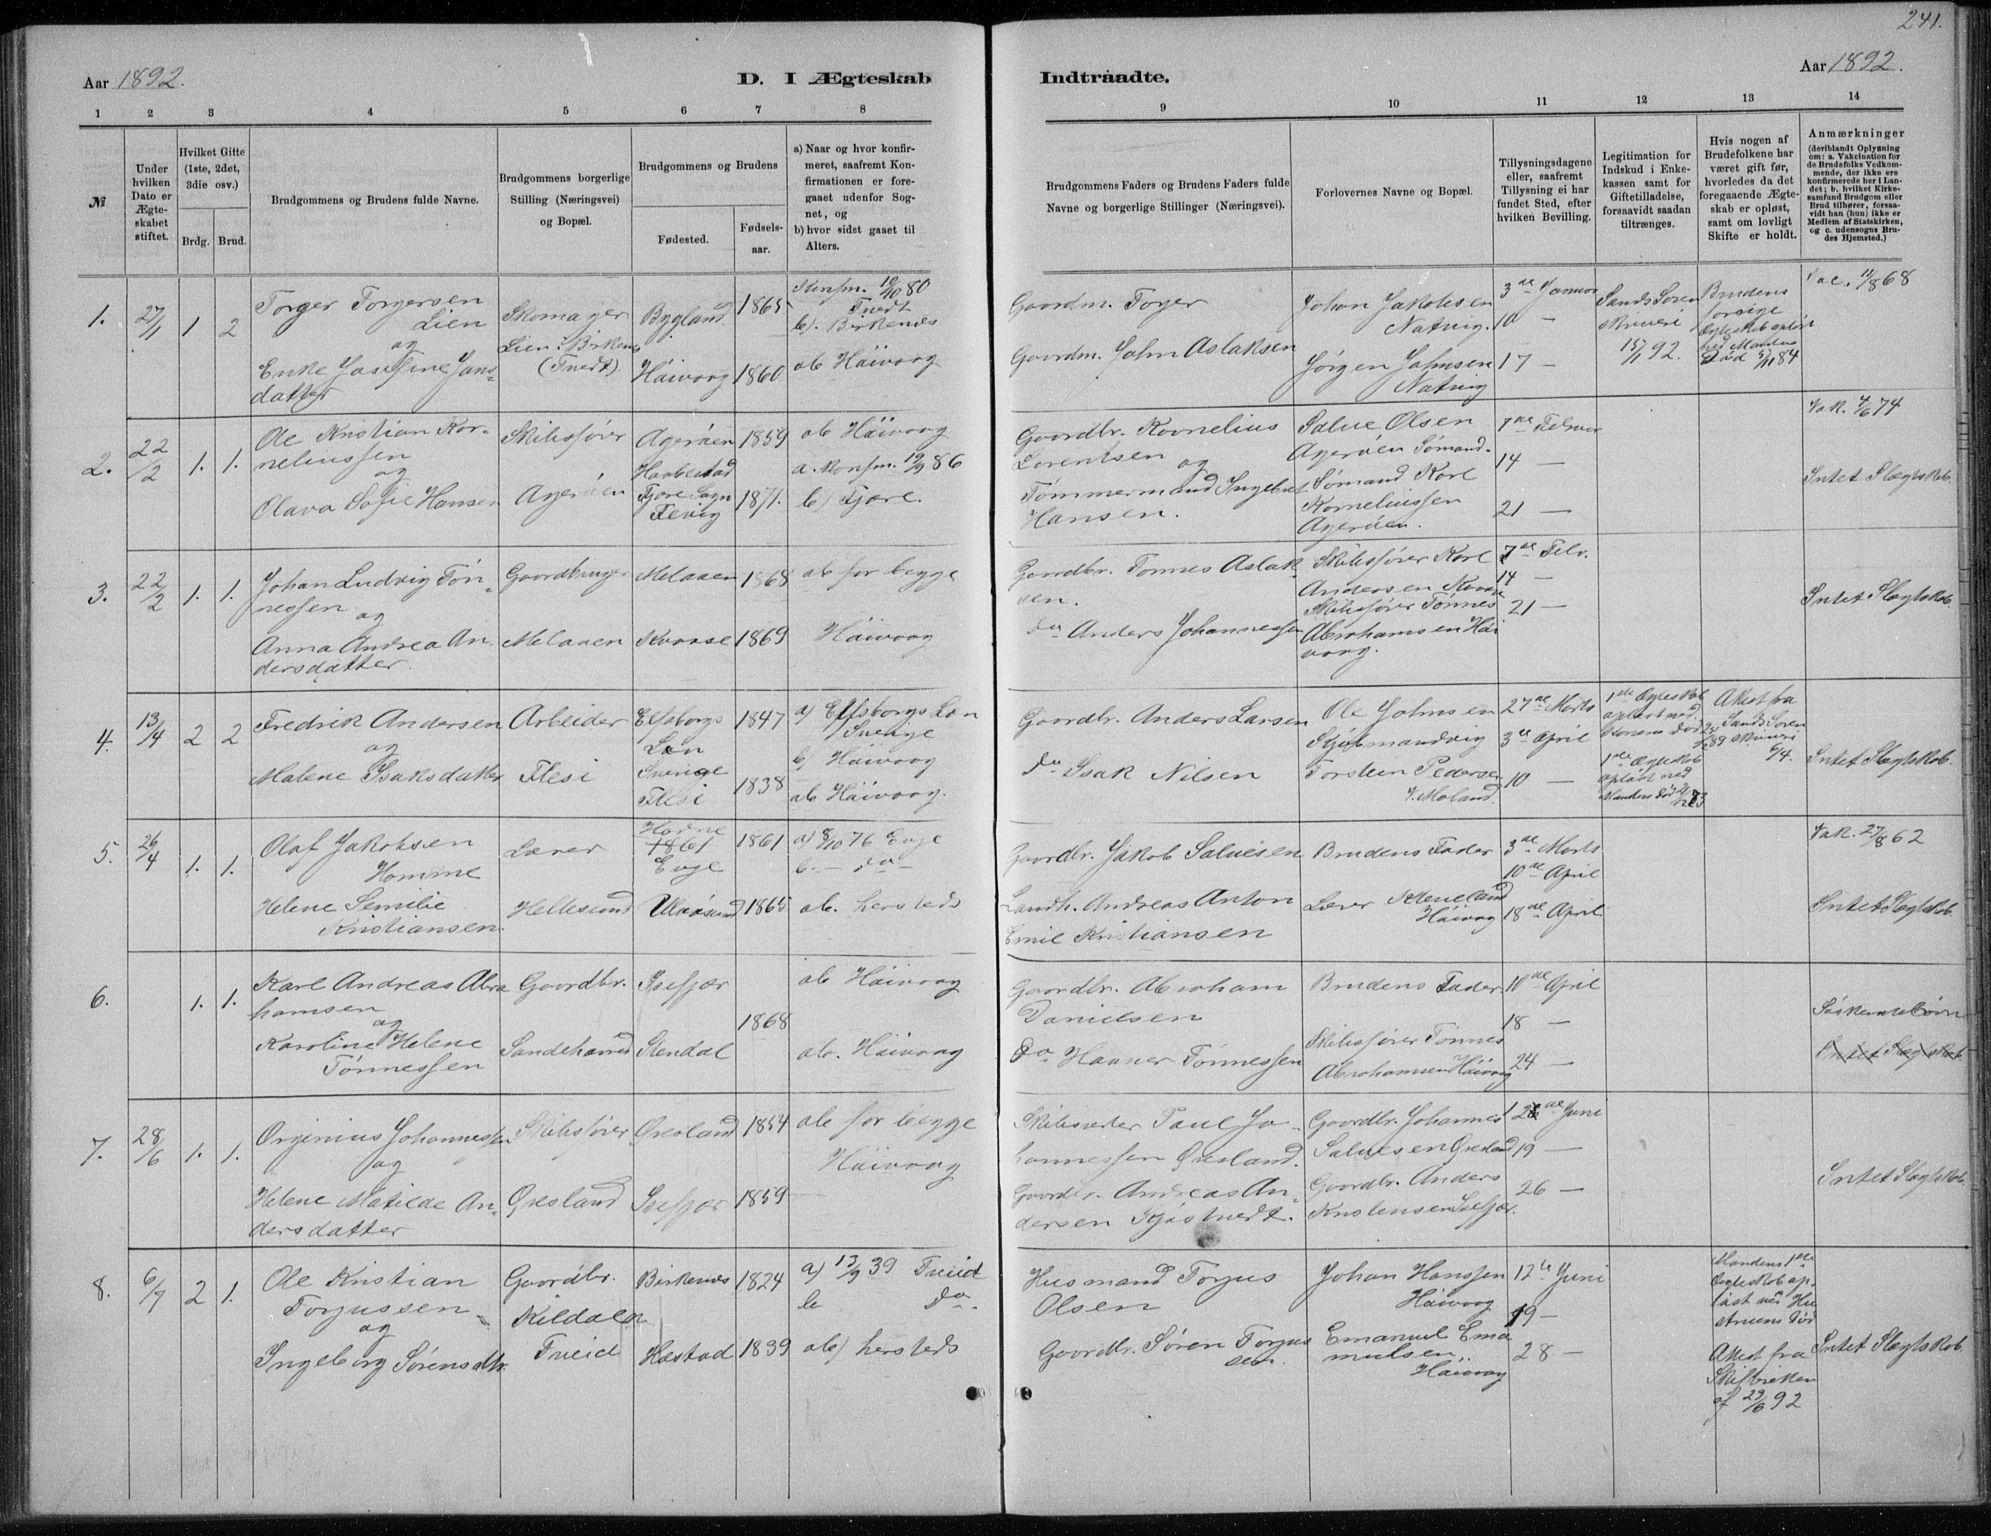 241.
Aar 1892.
D. I Ægteskab
Indtraadte.
Aar 1892.
1 2 3 4 5 6 7 8 9 10 11 12 13 14
№
Under
hvilken
Dato er
Ægte-
skabet
stiftet.
Hvilket Gifte
(1ste, 2det,
3die osv.)
Brdg. Brud.
Brudgommens og Brudens fulde Navne.
Brudgommens borgerlige
Stilling (Næringsvei)
og Bopæl.
Brudgommens og Brudens
Fødested.
Fødsels-
aar.
a) Naar og hvor konfir-
meret, saafremt Kon-
firmationen er fore-
gaaet udenfor Sog-
net, og
b) hvor sidst gaaet til
Alters.
Brudgommens Faders og Brudens Faders fulde
Navne og borgerlige Stillinger (Næringsvei).
Forlovernes Navne og Bopæl.
Tillysningsdagene
eller, saafremt
Tillysning ei har
fundet Sted, efter
hvilken Bevilling.
Legitimation for
Indskud i Enke-
kassen samt for
Giftetilladelse,
forsaavidt saadan
tiltrænges.
Hvis nogen af
Brudefolkene har
været gift før,
hvorledes da det
foregaaende Ægte-
skab er opløst,
samt om lovligt
Skifte er holdt.
Anmærkninger
(deriblandt Oplysning
om: a. Vakcination for
de Brudefolks Vedkom-
mende, der ikke ere
konfirmerede her i Lan-
det; b. hvilket Kirke-
samfund Brudgom eller
Brud tilhører, forsaa-
vidt han (hun) ikke er
Medlem af Statskirken,
og c. udensogns Bru-
des Hjemsted.)
1. 27/1 1 2
Torger Torgersen
Lien
og
Enke Josefine Jans-
datter
Skomager
Lien i Birkenes
(Tvedt)
Bygland 1865
Høivaag 1860
Konfm. 80
Tvedt
b). Birkenes
ab Høivaag
Gaardm. Torger
Gaardm. John Aslaksen
Johan Jakobsen
Natvig.
Jørgen Johnsen
Natvig
3de Januar
10 —
17 —
Sands Soren
skriveri
15/1 92.
Brudens
forrige
Ægteskab opløst
ved Mandens
Død 84
Vac. 11/8 68
2. 22/2 1. 1.
Ole Kristian Kor-
neliussen
og
Olava Sofie Hansen
Skibsfører
Agerøen
Agerøen 1859
Fjære Sogn
Fevig 1871.
ab Høivaag
a. Konfm. 19/9 86
b) Fjære.
Gaardbr. Kornelius
Lorentsen og
Tømmermand Ingebret
Hansen.
Salve Olsen
Agerøen Sømand.
Sømand Karl
Korneliussen
Agerøen.
7de Februar
14 —
21 —
Vak. 4/6 74
Intet Slægtskab.
3. 22/2 1. 1.
Johan Ludvig Tøn-
nessen
og
Anna Andrea An-
dersdatter.
Gaardbruger
Melaaen
Melaaen 1868
Kvaase 1869
ab for begge
Høivaag
Gaardbr. Tønnes Aslak-
sen.
do Anders Johannessen
Skibsfører Karl
Andersen Kvaase
Skibsfører Tønnes
Abrahamsen Høi
vaag.
7de Febr.
14 —
21 —
Intet Slægtskab.
4. 13/4 2 2
Fredrik Andersen
og
Malene Isaksdatter
Arbeider
Flesi
Elfsborgs
Len
Sverige
Flesi
1847
1838
a) Elfsborgs Len
Sverige
b) Høivaag
ab Høivaag.
Gaardbr. Anders Larsen
do Isak Nilsen
Ole Johnsen
Torsten Pedersen
V. Moland.
27de Marts
3de April
10 —
1ste Ægteskab
opløst ved
Konens Død 24/12 89
1ste Ægteskab
opløst ved
Mandens Død 83
Attest fra
Sands Soren
skriveri
6/4.
Intet Slægtskab.
5. 26/4 1. 1.
Olaf Jakobsen
Homme
Helene Semilie
Kristiansen.
Lærer
Hellesund
Hodne
1861
Evje
Ulvøsund
1861
1865
a) 8/10 76 Evje
b. — do —
ab. hersteds
Gaardbr. Jakob Salvesen
Landh. Andreas Anton
Emil Kristiansen
Brudens Fader
Lærer Kleveland
Høivaag
3de Marts
10de April
18de April
Vak. 27/8 62
Intet Slægtskab.
6. 1. 1.
Karl Andreas Abra
hamsen
og
Karoline Helene
Tønnessen
Gaardbr.
Isefjær
Stendal
1868
ab Høivaag
ab. Høivaag
Gaardbr. Abraham
Danielsen
do Haaver Tønnessen
Brudens Fader.
Skibsfører Tønnes
Abrahamsen Høivaag
10de April
18 —
24 —
Søskendebørn
Intet Slægtskab
7. 28/6 1. 1.
Orginius Johannessen
og
Helene Matilde An-
dersdatter
Skibsfører
Øresland
Øresland 1854
Isefjær 1859
ab for begge
Høivaag
Skibsreder Paul Jo-
hannessen Øresland.
Gaardbr. Andreas An-
dersen
Gaardbr. Johannes
Salvesen Øresland
Gaardbr. Anders
Kristensen Isefjær.
12de Juni
19 —
26 —
Intet Slægtskab.
8. 6/7 2 1.
Ole Kristian
Torjussen
og
Ingeborg Sørensdtr.
Gaardbr.
Kildalen
Tveid
Birkenes 1824
Hæstad 1839
a) 13/9 39 Tveid
b do.
ab) hersteds
Husmand Torjus
Olsen
Gaardbr. Søren Torjus
sen.
Johan Hanssen
Høivaag
Emanuel Ema
nuelsen,
Høivaag
12te Juni
19 —
28 —
Mandens 1ste
Ægteskab op-
løst ved Hu
struens Død
Attest fra
af 29/6 92
Intet Slægtskab.